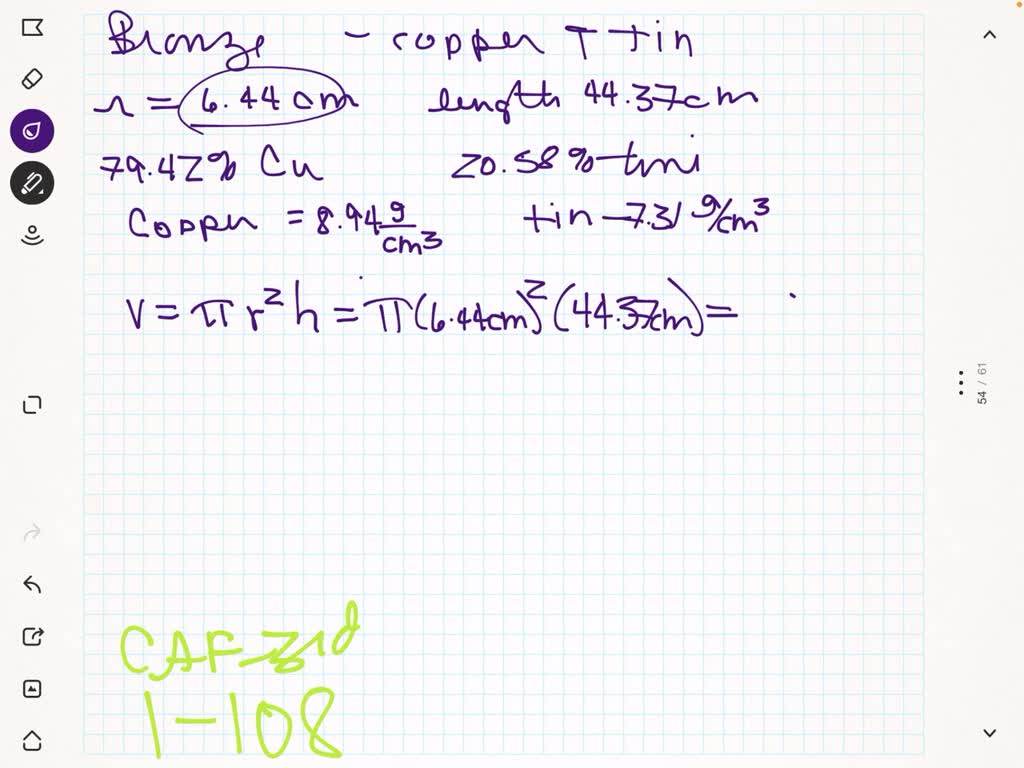 Bronze - copper + tin
r = 6.44 cm length 44.37cm
79.42% Cu 20.58% tin
Copper = 8.94 g/cm³ tin - 7.31 g/cm³
V = πr²h = π(6.44cm)²(44.37cm) =
54 / 61
1-108